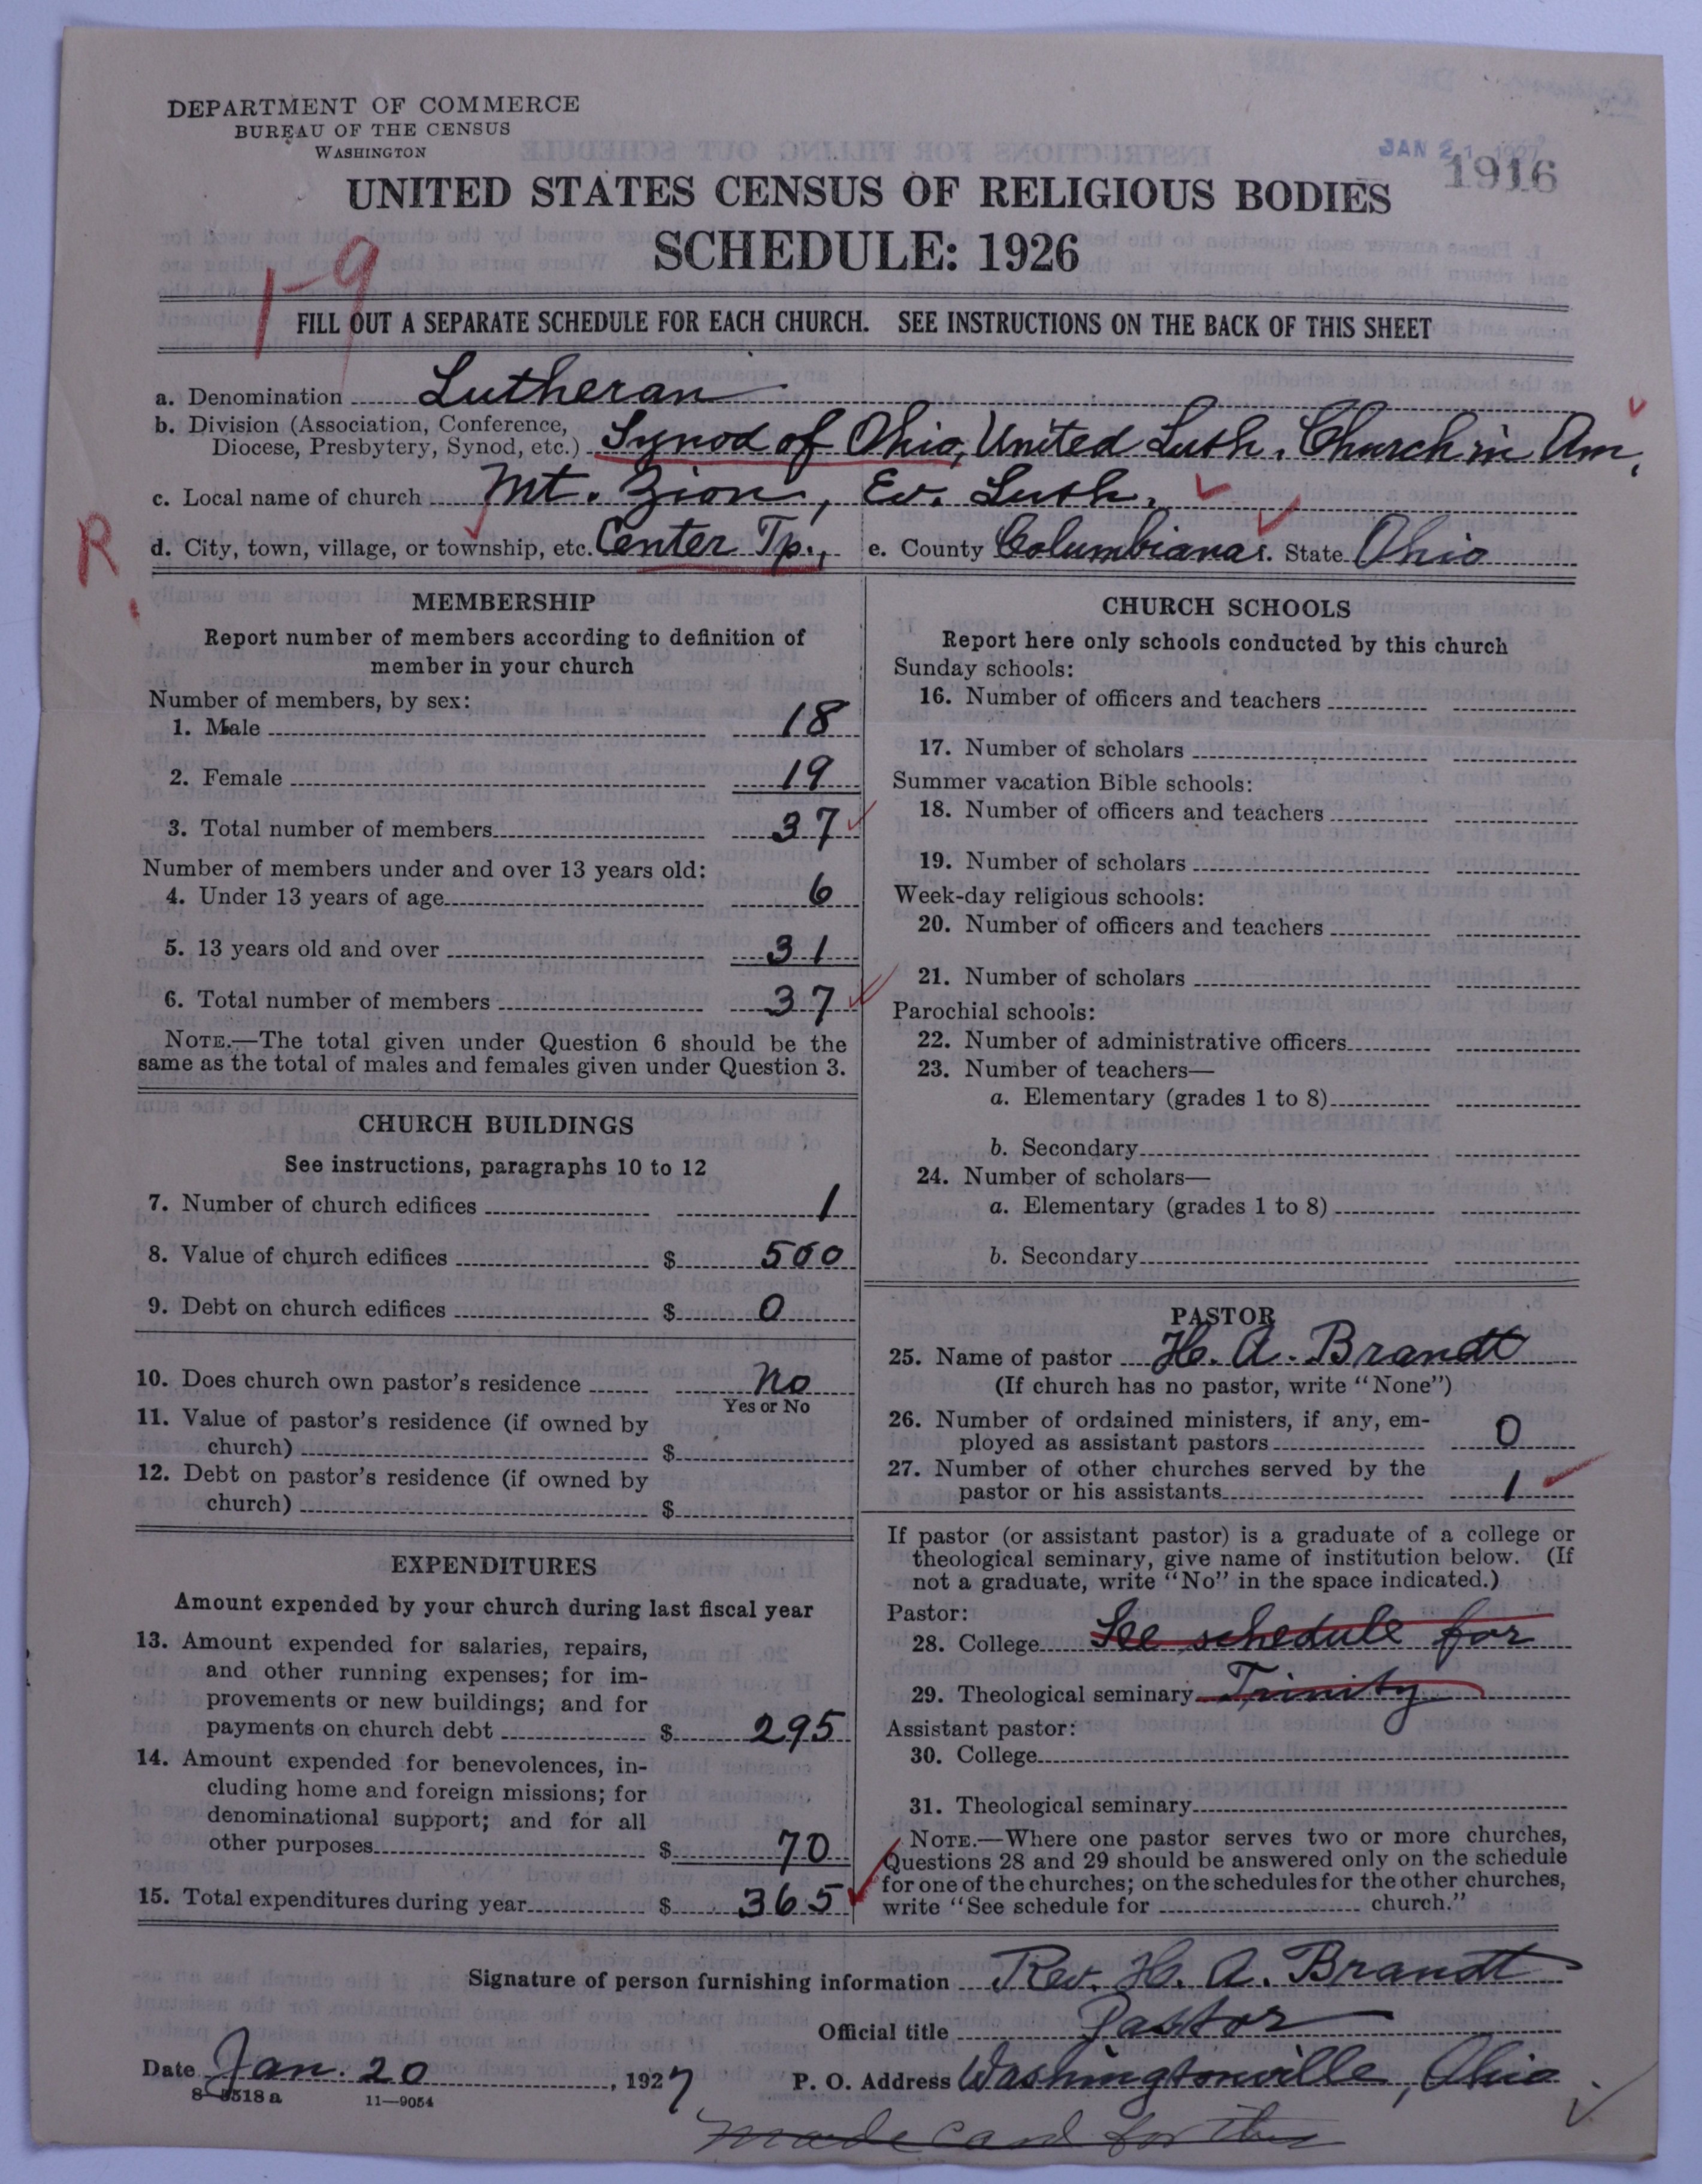 DEPARTMENT OF COMMERCE
BUREAU OF THE CENSUS
WASHINGTON
JAN 21 1927
1916
UNITED STATES CENSUS OF RELIGIOUS BODIES
SCHEDULE: 1926
1-9
FILL OUT A SEPARATE SCHEDULE FOR EACH CHURCH. SEE INSTRUCTIONS ON THE BACK OF THIS SHEET
a. Denomination Lutheran
b. Division (Association, Conference,
Diocese, Presbytery, Synod, etc.) Synod of Ohio, United Luth. Church in Am.
c. Local name of church Mt. Zion, Ev. Luth.
R
d. City, town, village, or township, etc. Center Tp., e. County Columbiana f. State Ohio
MEMBERSHIP
Report number of members according to definition of
member in your church
Number of members, by sex:
1. Male 18
2. Female 19
3. Total number of members 37
Number of members under and over 13 years old:
4. Under 13 years of age 6
5. 13 years old and over 31
6. Total number of members 37
NOTE.—The total given under Question 6 should be the
same as the total of males and females given under Question 3.
CHURCH BUILDINGS
See instructions, paragraphs 10 to 12
7. Number of church edifices 1
8. Value of church edifices $ 500
9. Debt on church edifices $ 0
10. Does church own pastor's residence No
Yes or No
11. Value of pastor's residence (if owned by
church) $
12. Debt on pastor's residence (if owned by
church) $
EXPENDITURES
Amount expended by your church during last fiscal year
13. Amount expended for salaries, repairs,
and other running expenses; for im-
provements or new buildings; and for
payments on church debt $ 295
14. Amount expended for benevolences, in-
cluding home and foreign missions; for
denominational support; and for all
other purposes $ 70
15. Total expenditures during year $ 365
CHURCH SCHOOLS
Report here only schools conducted by this church
Sunday schools:
16. Number of officers and teachers
17. Number of scholars
Summer vacation Bible schools:
18. Number of officers and teachers
19. Number of scholars
Week-day religious schools:
20. Number of officers and teachers
21. Number of scholars
Parochial schools:
22. Number of administrative officers
23. Number of teachers—
a. Elementary (grades 1 to 8)
b. Secondary
24. Number of scholars—
a. Elementary (grades 1 to 8)
b. Secondary
PASTOR
25. Name of pastor H. A. Brandt
(If church has no pastor, write "None")
26. Number of ordained ministers, if any, em-
ployed as assistant pastors 0
27. Number of other churches served by the
pastor or his assistants 1
If pastor (or assistant pastor) is a graduate of a college or
theological seminary, give name of institution below. (If
not a graduate, write "No" in the space indicated.)
Pastor:
28. College See schedule for
29. Theological seminary Trinity
Assistant pastor:
30. College
31. Theological seminary
NOTE.—Where one pastor serves two or more churches,
Questions 28 and 29 should be answered only on the schedule
for one of the churches; on the schedules for the other churches,
write "See schedule for church."
Signature of person furnishing information Rev. H. A. Brandt
Official title Pastor
Date Jan. 20, 1927 P. O. Address Washingtonville, Ohio
8-8518a 11—9054
made card for this